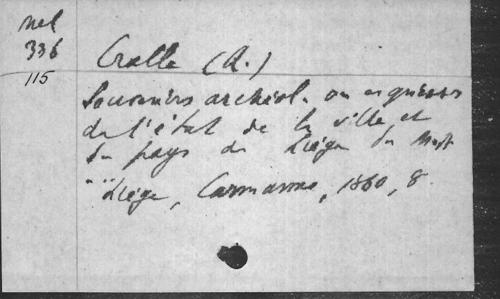 Mel
336
115
Cralle (A.)
Souvenirs archéol. ou esquisses
de l'état de la ville et
du pays de Liège du
Liége, Carmanne, 1860, 8.